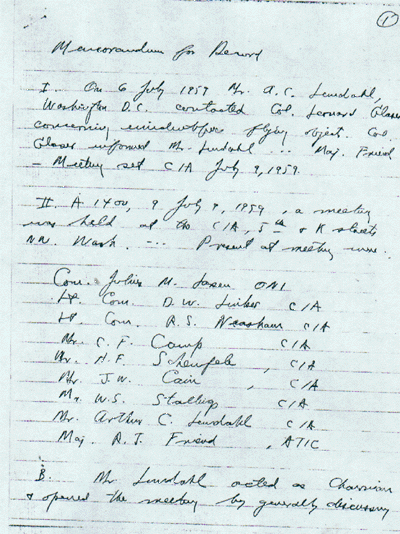 1
Memorandum for Record
I. On 6 July 1959 Mr. A.C. Lundahl,
Washington D.C. contacted Col. Leonard Glaser
concerning unidentified flying object. Col.
Glaser informed Mr. Lundahl --- Maj. Friend
- Meeting set CIA July 9, 1959.
II. A. 1400, 9 July, 1959, a meeting
was held at the CIA, 5th & K streets
N.W. Wash. --- Present at meeting were.
Com. Julius M. Larsen ONI
Lt Com. D.W. Linker CIA
Lt Com. R.S. CIA
Mr. C. F. Camp CIA
Mr. H.F. Scheufele, CIA
Mr. J.W. Cain, CIA
Mr. W.S. Stallings CIA
Mr. Arthur C. Lundahl CIA
Maj. R. J. Friend, ATIC
B. Mr Lundahl acted as Chairman
& opened the meeting by generally discussing